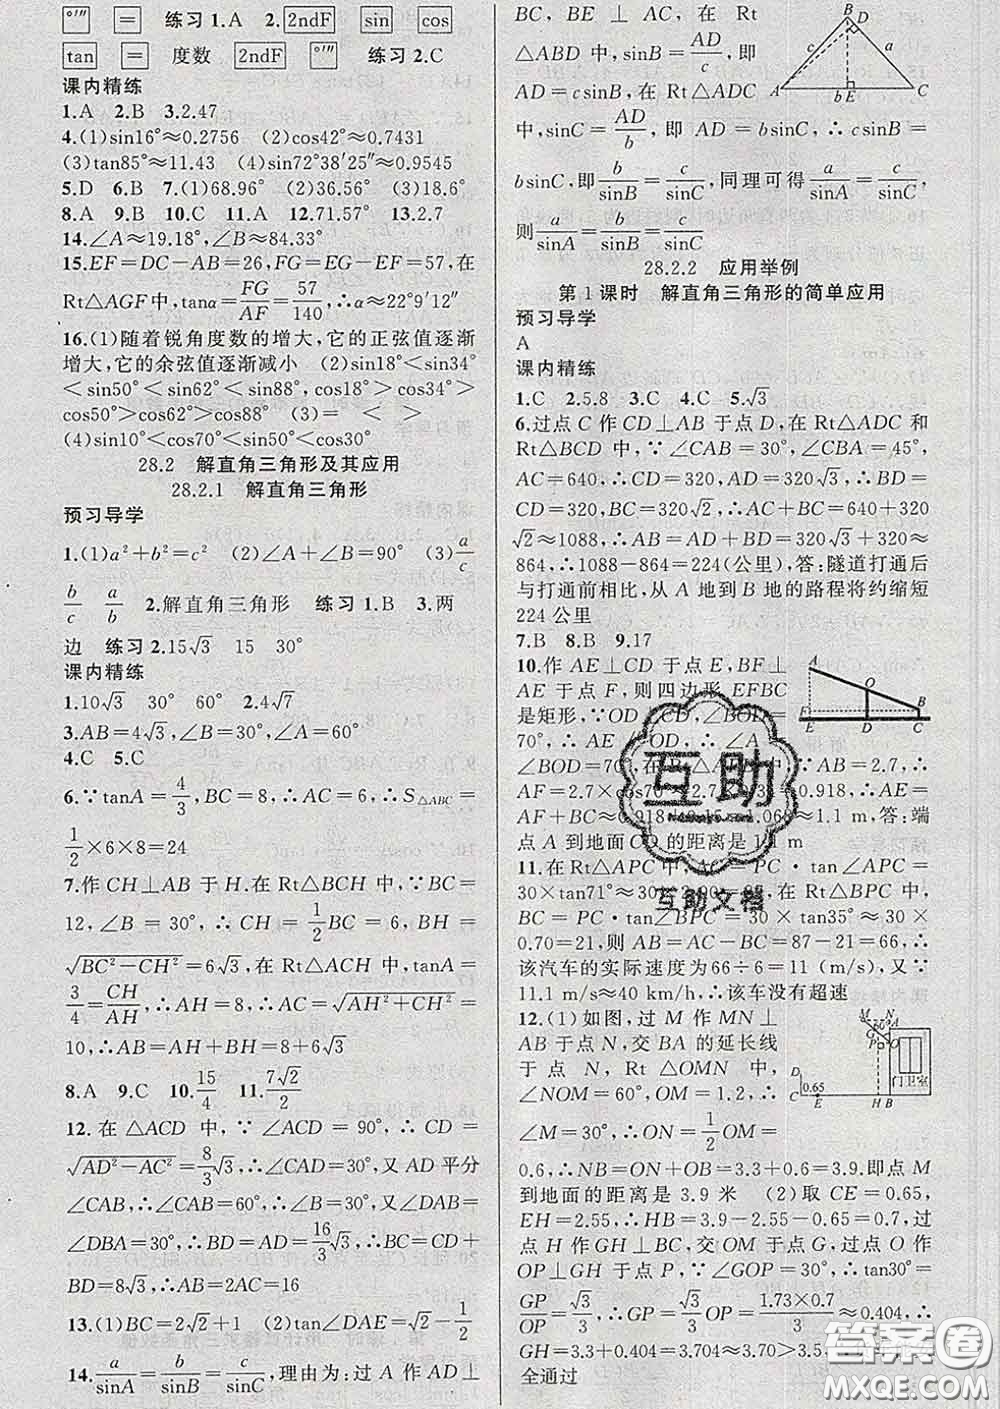 °′″ = 练习1.A 2. 2ndF sin cos
tan = 度数 2ndF °′″ 练习2.C
课内精练
1.A 2.B 3.2.47
4.(1)sin16°≈0.2756 (2)cos42°≈0.7431
(3)tan85°≈11.43 (4)sin72°38′25″≈0.9545
5.D 6.B 7.(1)68.96° (2)36.56° (3)18.6°
8.A 9.B 10.C 11.A 12.71.57° 13.2.7
14.∠A≈19.18°,∠B≈84.33°
15.EF=DC-AB=26,FG=EG-EF=57,在
Rt△AGF中,tanα=FG/AF=57/140,∴α≈22°9′12″
16.(1)随着锐角度数的增大,它的正弦值逐渐
增大,它的余弦值逐渐减小 (2)sin18°<sin34°
<sin50°<sin62°<sin88°,cos18°>cos34°>
cos50°>cos62°>cos88° (3)= < >
(4)sin10°<cos70°<sin50°<cos30°
28.2 解直角三角形及其应用
28.2.1 解直角三角形
预习导学
1.(1)a²+b²=c² (2)∠A+∠B=90° (3)a/c
b/c a/b 2.解直角三角形 练习1.B 3.两
边 练习2.15√3 15 30°
课内精练
1.10√3 30° 60° 2.4√7
3.AB=4√3,∠B=30°,∠A=60°
4.C 5.C
6.∵tanA=4/3,BC=8,∴AC=6,∴S△ABC=
1/2×6×8=24
7.作CH⊥AB于H.在Rt△BCH中,∵BC=
12,∠B=30°,∴CH=1/2BC=6,BH=
√(BC²-CH²)=6√3,在Rt△ACH中,tanA=
3/4=CH/AH,∴AH=8,∴AC=√(AH²+CH²)=
10,∴AB=AH+BH=8+6√3
8.A 9.C 10.15/4 11.7√2/2
12.在△ACD中,∵∠ACD=90°,∴CD=
√(AD²-AC²)=8/3√3,∴∠CAD=30°,又AD平分
∠CAB,∴∠CAB=60°,∴∠B=30°,∴∠DAB=
∠DBA=30°,∴BD=AD=16/3√3,∴BC=CD+
BD=8√3,∴AB=2AC=16
13.(1)BC=2√2+1 (2)tan∠DAE=√2-1/2
14.a/sinA=b/sinB=c/sinC,理由为:过A作AD⊥
BC,BE⊥AC,在Rt
△ABD中,sinB=AD/c,即
AD=csinB,在Rt△ADC
中,sinC=AD/b,即AD=bsinC,∴csinB=
bsinC,即b/sinB=c/sinC,同理可得a/sinA=c/sinC,
则a/sinA=b/sinB=c/sinC
B
D
c
a
A
b
E
C
28.2.2 应用举例
第1课时 解直角三角形的简单应用
预习导学
A
课内精练
1.C 2.5.8 3.C 4.C 5.√3
6.过点C作CD⊥AB于点D,在Rt△ADC和
Rt△BCD中,∵∠CAB=30°,∠CBA=45°,
AC=640,∴CD=320,AD=320√3,∴BD=
CD=320,BC=320√2,∴AC+BC=640+320
√2≈1088,∴AB=AD+BD=320√3+320≈
864,∴1088-864=224(公里),答:隧道打通后
与打通前相比,从A地到B地的路程将约缩短
224公里
7.B 8.B 9.17
10.作AE⊥CD于点E,BF⊥
AE于点F,则四边形EFBC
是矩形,∵OD⊥CD,∠BOD=
70°,∴AE∥OD,∴∠A=
∠BOD=70°,在Rt△AFB中,∵AB=2.7,∴
AF=2.7×cos70°≈2.7×0.34=0.918,∴AE=
AF+BC≈0.918+0.15=1.068≈1.1 m,答:端
点A到地面CD的距离是1.1 m
A
O
F
B
E
D
C
11.在Rt△APC中,AC=PC·tan∠APC=
30×tan71°≈30×2.90=87,在Rt△BPC中,
BC=PC·tan∠BPC=30×tan35°≈30×
0.70=21,则AB=AC-BC=87-21=66,∴
该汽车的实际速度为66÷6=11(m/s),又∵
11.1 m/s≈40 km/h,∴该车没有超速
12.(1)如图,过M作MN⊥
AB于点N,交BA的延长线
于点N,Rt△OMN中,
∠NOM=60°,OM=1.2,∴
∠M=30°,∴ON=1/2OM=
0.6,∴NB=ON+OB=3.3+0.6=3.9.即点M
到地面的距离是3.9米 (2)取CE=0.65,
EH=2.55,∴HB=3.9-2.55-0.65=0.7,过
点H作GH⊥BC,交OM于点G,过点O作
OP⊥GH于点P,∵∠GOP=30°,∴tan30°=
GP/OP=√3/3,∴GP=√3/3OP=1.73×0.7/3≈0.404,∴
GH=3.3+0.404=3.704≈3.70>3.5
全通过
M
N
A
G
P
O
D
0.65
C
E
H
B
门卫室
互助
互助文档
答案圈
MXQE.COM